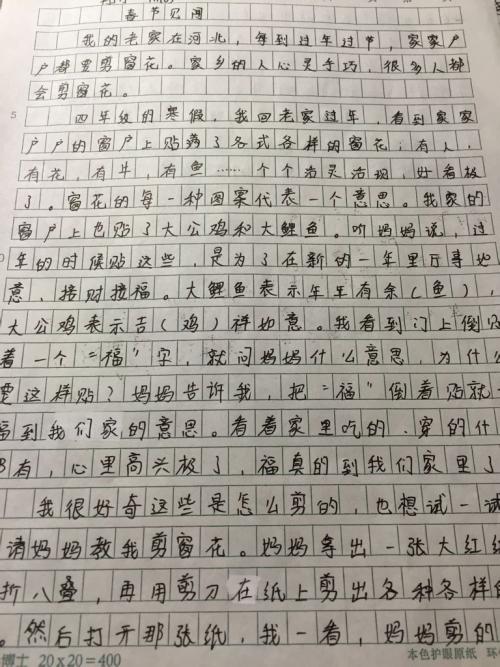 春节见闻
我的老家在河北，每到过年过节，家家户
户都要剪窗花。家乡的人心灵手巧，很多人都
会剪窗花。
5
四年级的寒假，我回老家过年，看到家家
户户的窗户上贴满了各式各样的窗花：有人，
有花，有牛，有鱼……个个活灵活现，好看极
了。窗花的每一种图案代表一个意思。我家的
窗户上也贴了大公鸡和大鲤鱼。听妈妈说，过
年的时候贴这些，是为了在新的一年里万事如
意，接财接福。大鲤鱼表示年年有余（鱼），
大公鸡表示吉（鸡）祥如意。我看到门上倒
着一个“福”字，就问妈妈什么意思，为什
要这样贴？妈妈告诉我，把“福”倒着贴就
福到我们家的意思。看着家里吃的、穿的什
都有，心里高兴极了，福真的到我们家里了
我很好奇这些是怎么剪的，也想试一试
请妈妈教我剪窗花。妈妈拿出一张大红
折八叠，再用剪刀在纸上剪出各种各样
。然后打开那张纸，我一看，妈妈剪的
博士 20×20=400 本色护眼原纸 环